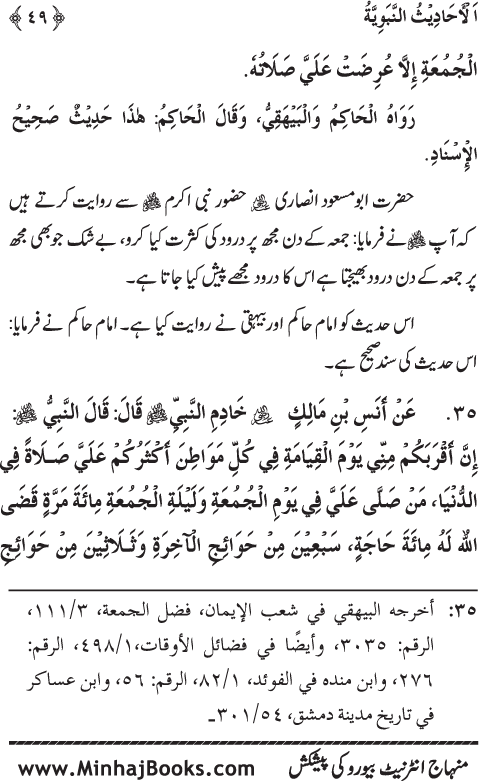 اَلْأَحَادِيْثُ النَّبَوِيَّةُ ﴿٤٩﴾
الْجُمُعَةِ إِلَّا عُرِضَتْ عَلَيَّ صَلَاتُهُ.
رَوَاهُ الْحَاكِمُ وَالْبَيْهَقِيُّ، وَقَالَ الْحَاكِمُ: هٰذَا حَدِيْثٌ صَحِيْحُ
الإِسْنَادِ.
حضرت ابو مسعود انصاری ؓ حضور نبی اکرم ﷺ سے روایت کرتے ہیں
کہ آپ ﷺ نے فرمایا: جمعہ کے دن مجھ پر درود کی کثرت کیا کرو، بے شک جو بھی مجھ
پر جمعہ کے دن درود بھیجتا ہے اس کا درود مجھے پیش کیا جاتا ہے۔
اس حدیث کو امام حاکم اور بیہقی نے روایت کیا ہے۔ امام حاکم نے فرمایا:
اس حدیث کی سند صحیح ہے۔
٣٥. عَنْ أَنَسِ بْنِ مَالِكٍ ؓ خَادِمِ النَّبِيِّ ﷺ قَالَ: قَالَ النَّبِيُّ ﷺ:
إِنَّ أَقْرَبَكُمْ مِنِّي يَوْمَ الْقِيَامَةِ فِي كُلِّ مَوَاطِنَ أَكْثَرُكُمْ عَلَيَّ صَلَاةً فِي
الدُّنْيَا، مَنْ صَلَّى عَلَيَّ فِي يَوْمِ الْجُمُعَةِ وَلَيْلَةِ الْجُمُعَةِ مِائَةَ مَرَّةٍ قَضَى
اللهُ لَهُ مِائَةَ حَاجَةٍ، سَبْعِيْنَ مِنْ حَوَائِجِ الْآخِرَةِ وَثَلَاثِيْنَ مِنْ حَوَائِجِ
٣٥: أخرجه البيهقي في شعب الإيمان، فضل الجمعة، ٣/١١١،
الرقم: ٣٠٣٥، وأيضًا في فضائل الأوقات،١/٤٩٨، الرقم:
٢٧٦، وابن منده في الفوائد، ١/٨٢، الرقم: ٥٦، وابن عساكر
في تاريخ مدينة دمشق، ٥٤/٣٠١ـ
منہاج انٹرنیٹ بیورو کی پیشکش www.MinhajBooks.com